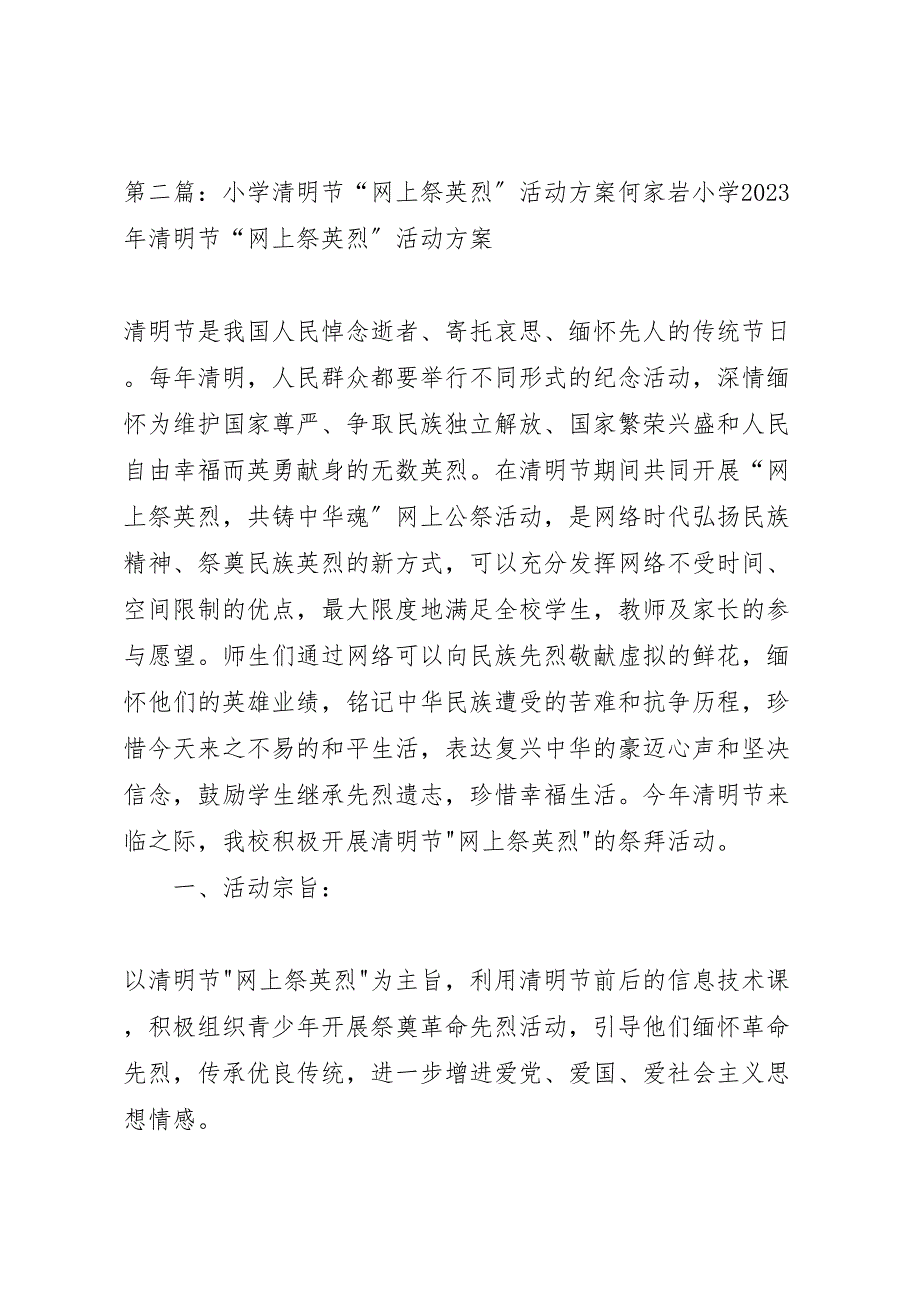 第二篇：小学清明节“网上祭英烈〞活动方案何家岩小学2023
年清明节“网上祭英烈〞活动方案
清明节是我国人民悼念逝者、寄托哀思、缅怀先人的传统节日
。每年清明，人民群众都要举行不同形式的纪念活动，深情缅
怀为维护国家尊严、争取民族独立解放、国家繁荣兴盛和人民
自由幸福而英勇献身的无数英烈。在清明节期间共同开展“网
上祭英烈，共铸中华魂〞网上公祭活动，是网络时代弘扬民族
精神、祭奠民族英烈的新方式，可以充分发挥网络不受时间、
空间限制的优点，最大限度地满足全校学生，教师及家长的参
与愿望。师生们通过网络可以向民族先烈敬献虚拟的鲜花，缅
怀他们的英雄业绩，铭记中华民族遭受的苦难和抗争历程，珍
惜今天来之不易的和平生活，表达复兴中华的豪迈心声和坚决
信念，鼓励学生继承先烈遗志，珍惜幸福生活。今年清明节来
临之际，我校积极开展清明节"网上祭英烈"的祭拜活动。
一、活动宗旨：
以清明节"网上祭英烈"为主旨，利用清明节前后的信息技术课
，积极组织青少年开展祭奠革命先烈活动，引导他们缅怀革命
先烈，传承优良传统，进一步增进爱党、爱国、爱社会主义思
想情感。